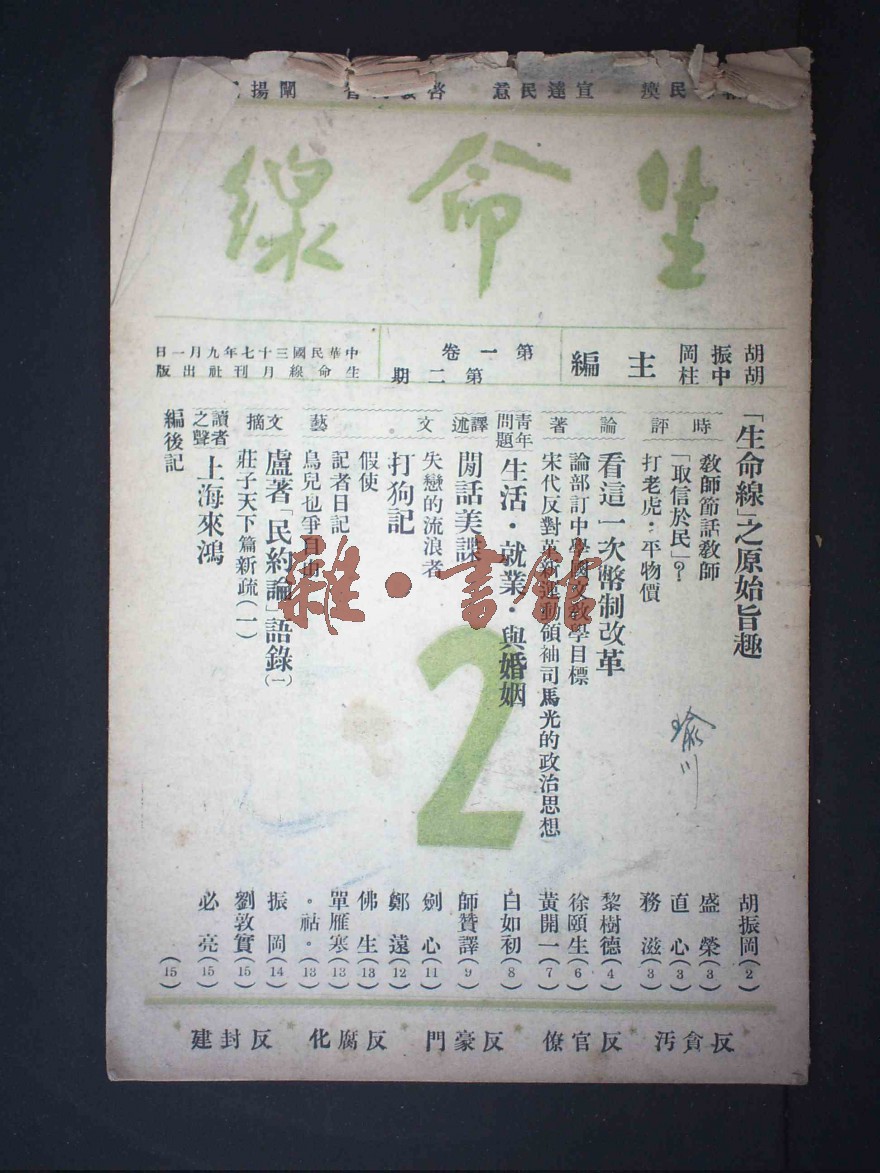 民瘼 宣達民意 啓發 闡揚
生命線
胡振岡
胡中柱
主編
第一卷
第二期
中華民國三十七年九月一日
生命線月刊社出版
「生命線」之原始旨趣 胡振岡(2)
時評
教師節話教師 盛榮(3)
「取信於民」? 直心(3)
打老虎・平物價 務滋(3)
論著
看這一次幣制改革 黎樹德(4)
論部訂中學國文教學目標 徐頤生(6)
宋代反對革新運動領袖司馬光的政治思想 黃開一(7)
青年問題
生活・就業・與婚姻 白如初(8)
譯述
閒話美諜 師贊譯(9)
文藝
失戀的流浪者 劍心(11)
打狗記 鄭遠(12)
假使 佛生(13)
記者日記 單雁寒(13)
鳥兒也爭自由 ・祜・(13)
文摘
盧著「民約論」語錄(一) 振岡(14)
莊子天下篇新疏(一) 劉敦實(15)
讀者之聲
上海來鴻 必亮(15)
編後記 (15)
2
瑜川
雜・書館
反貪污 反官僚 反豪門 反腐化 反封建